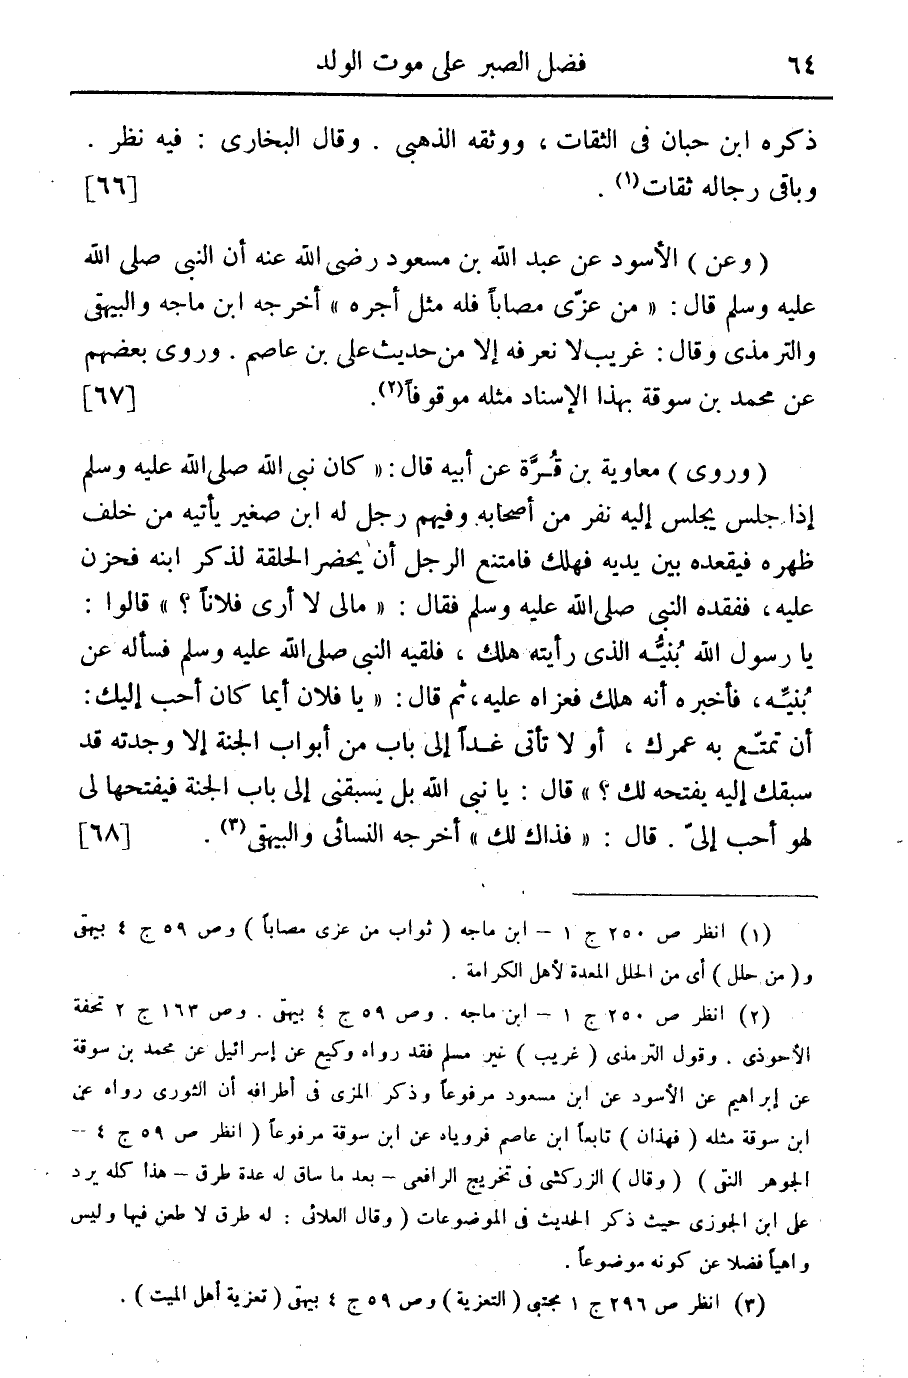 ٦٤ فضل الصبر على موت الولد
ذكره ابن حبان فى الثقات ، ووثقه الذهبى . وقال البخارى : فيه نظر .
وباقى رجاله ثقات(١) . [٦٦]
( وعن ) الأسود عن عبد الله بن مسعود رضى الله عنه أن النبى صلى الله
عليه وسلم قال : « من عزّى مصاباً فله مثل أجره » أخرجه ابن ماجه والبيهقى
والترمذى وقال : غريب لا نعرفه إلا من حديث على بن عاصم . وروى بعضهم
عن محمد بن سوقة بهذا الإسناد مثله موقوفاً(٢). [٦٧]
( وروى ) معاوية بن قُـرَّة عن أبيه قال : « كان نبى الله صلى الله عليه وسلم
إذا جلس يجلس إليه نفر من أصحابه وفيهم رجل له ابن صغير يأتيه من خلف
ظهره فيقعده بين يديه فهلك فامتنع الرجل أن يحضر الحلقة لذكر ابنه فحزن
عليه ، ففقده النبى صلى الله عليه وسلم فقال : « مالى لا أرى فلاناً ؟ » قالوا :
يا رسول الله بُنيُّـه الذى رأيته هلك ، فلقيه النبى صلى الله عليه وسلم فسأله عن
بُنيِّـه ، فأخبره أنه هلك فعزاه عليه ، ثم قال : « يا فلان أيما كان أحب إليك :
أن تمتـّع به عمرك ، أو لا تأتى غـداً إلى باب من أبواب الجنة إلا وجدته قد
سبقك إليه يفتحه لك ؟ » قال : يا نبى الله بل يسبقنى إلى باب الجنة فيفتحها لى
لهو أحب إلىّ . قال : « فذاك لك » أخرجه النسائى والبيهقى(٣) . [٦٨]
(١) انظر ص ٢٥٠ ج ١ – ابن ماجه ( ثواب من عزى مصاباً ) وص ٥٩ ج ٤ بيهقى
و( من حلل ) أى من الحلل المعدة لأهل الكرامة .
(٢) انظر ص ٢٥٠ ج ١ – ابن ماجه . وص ٥٩ ج ٤ بيهقى . وص ١٦٣ ج ٢ تحفة
الأحوذى . وقول الترمذى ( غريب ) غير مسلم فقد رواه وكيع عن إسرائيل عن محمد بن سوقة
عن إبراهيم عن الأسود عن ابن مسعود مرفوعاً وذكر المزى فى أطرافه أن الثورى رواه عن
ابن سوقة مثله ( فهذان ) تابعاً ابن عاصم فروياه عن ابن سوقة مرفوعاً ( انظر ص ٥٩ ج ٤ –
الجوهر النقى ) ( وقال ) الزركشى فى تخريج الرافعى – بعد ما ساق له عدة طرق – هذا كله يرد
على ابن الجوزى حيث ذكر الحديث فى الموضوعات ( وقال العلائى : له طرق لا طعن فيها وليس
واهياً فضلا عن كونه موضوعاً .
(٣) انظر ص ٢٩٦ ج ١ مجتبى ( التعزية ) وص ٥٩ ج ٤ بيهقى ( تعزية أهل الميت ) .